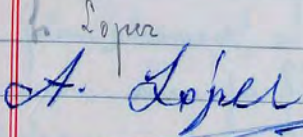 Loper
A. Loper